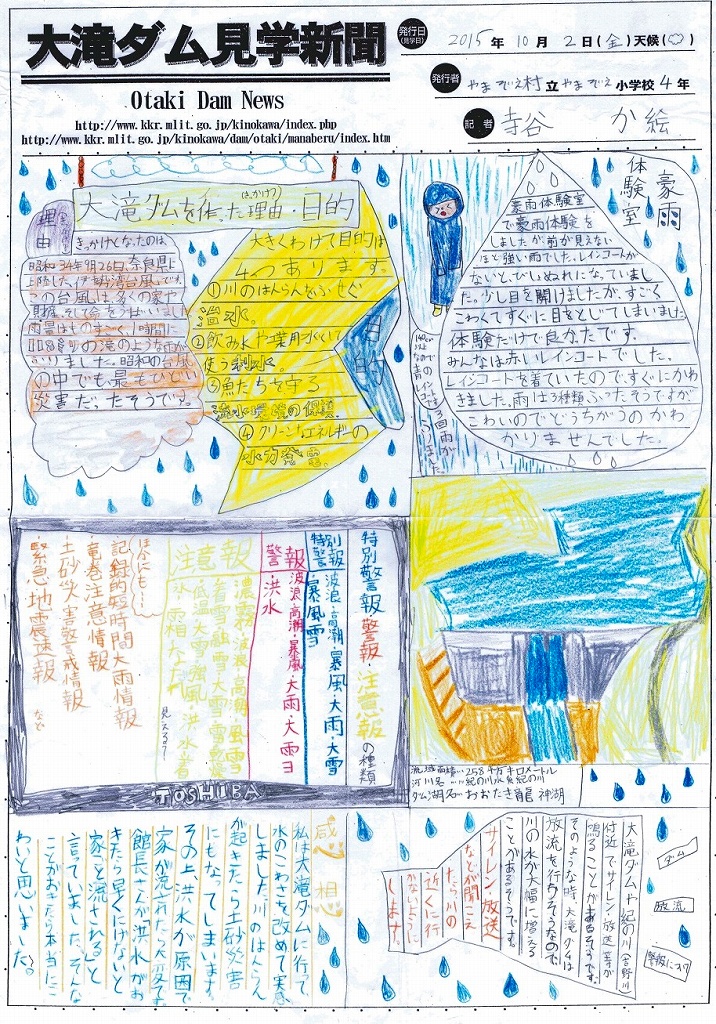 大滝ダム見学新聞
Otaki Dam News
http://www.kkr.mlit.go.jp/kinokawa/index.php
http://www.kkr.mlit.go.jp/kinokawa/dam/otaki/manaberu/index.htm
発行日
(見学日)
2015年10月2日(金)天候(
発行者
やまぞえ村立やまぞえ小学校4年
記者
寺谷 か絵
大滝ダムを作った理由・目的
(きっかけ)
理由
きっかけとなったのは、
昭和34年9月26日、奈良県に
上陸した「伊勢湾台風」です。
この台風は、多くの家や
財産、そして命をうばいました。
雨量はものすごく、1時間に
いました。昭和の台風
の中でも最もひどい
災害だったそうです。
大きくわけて目的は
4つあります。
①川のはんらんをふせぐ
②飲み水や
使う利水。
③魚たちを守る
流水環境の保護。
④クリーンなエネルギーの
水力発電。
目的
豪雨
体験室
豪雨体験室
で豪雨体験を
しましたが、前が見えない
ほど強い雨でした。レインコートが
ないと、びしょぬれになっていまし
た。少し目を開けましたが、すごく
こわくてすぐに目をとじてしまいました
体験だけで良かったです。
みんなは赤いレインコートでした。
レインコートを着ていたので、すぐにかわ
きました。雨は3種類、ふったそうですが
こわいのでどうちがうのかわ
かりませんでした。
特別警報・警報・注意報の種類
特別警報
波浪・高潮・暴風・大雨・大雪
・暴風雪
警報
波浪・高潮・暴風・大雨・大雪
洪水
注意報
ほかにも…
記録的短時間大雨情報
竜巻注意情報
土砂災害警戒情報
緊急地震速報
など
TOSHIBA
ダム湖名 おおたき龍神湖
感想
私は大滝ダムに行って、
水のこわさを改めて実感
しました。川のはんらん
が起きたら土砂災害
にもなってしまいます。
その上洪水が原因で
家が流されたら大変です。
館長さんが洪水がお
きたら早くにげないと
家ごと流されると
言っていました。そんな
ことがおきたら本当にこ
わいと思いました。
大滝ダムや紀の川(吉野川)
付近でサイレン・放送等が
鳴ることがあるそうです。
そのような時、大滝ダムは
放流を行うそうなので、
川の水が大幅に増える
ことがあるそうです。
サイレン・放送
などが聞こえ
たら川の
近くに行
かないように
します。
ダム
放流